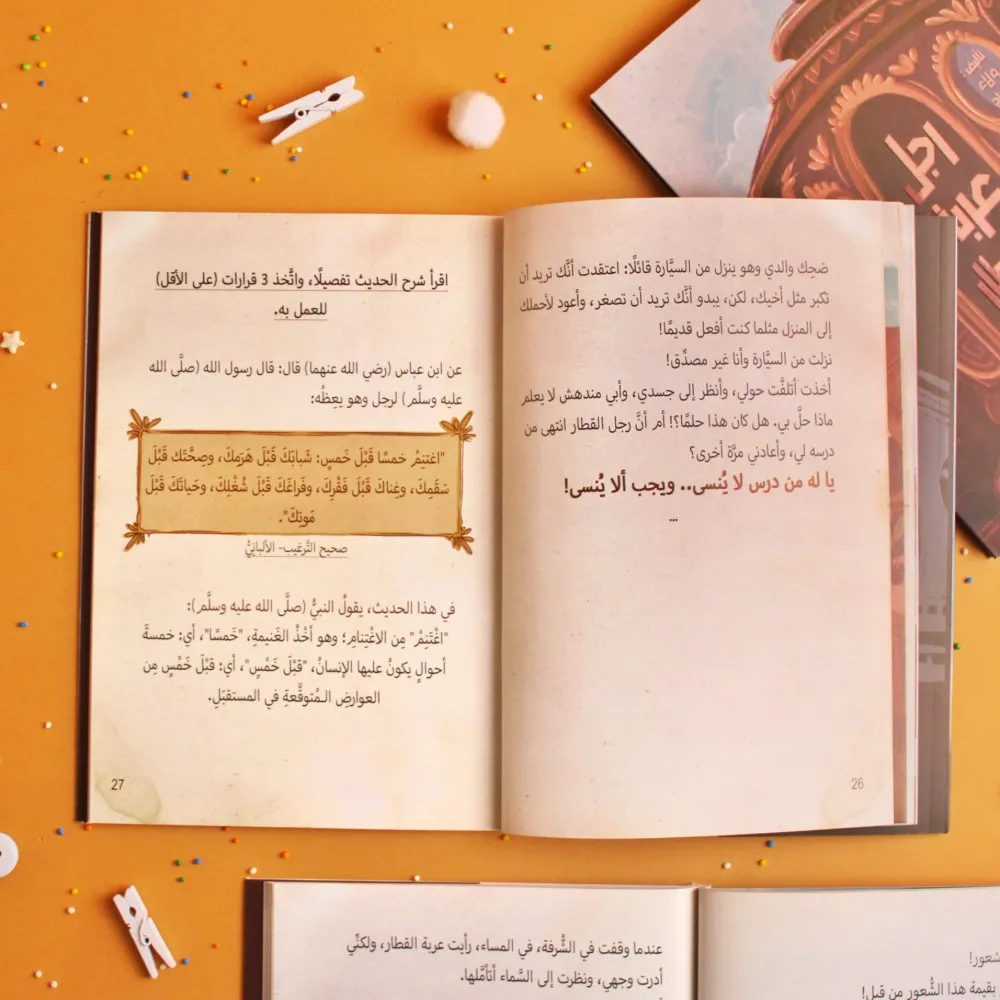 ضحِك والدي وهو ينزل من السيَّارة قائلًا: اعتقدت أنَّك تريد أن
تكبر مثل أخيك، لكن، يبدو أنَّك تريد أن تصغر، وأعود لأحملك
إلى المنزل مثلما كنت أفعل قديمًا!
نزلت من السيَّارة وأنا غير مصدِّق!
أخذت أتلفَّت حولي، وأنظر إلى جسدي، وأبي مندهش لا يعلم
ماذا حلَّ بي. هل كان هذا حلمًا؟! أم أنَّ رجل القطار انتهى من
درسه لي، وأعادني مرَّة أخرى؟
يا له من درس لا يُنسى.. ويجب ألا يُنسى!
...
26
اقرأ شرح الحديث تفصيلًا، واتَّخذ 3 قرارات (على الأقل)
للعمل به.
عن ابن عباس (رضي الله عنهما) قال: قال رسول الله (صلَّى الله
عليه وسلَّم) لرجل وهو يعِظُه:
"اغتنِمْ خمسًا قَبْلَ خَمسٍ: شَبابَكَ قَبْلَ هَرَمِكَ، وصِحَّتَك قَبْلَ
سَقَمِكَ، وغِناكَ قَبْلَ فَقْرِكَ، وفَراغَكَ قَبْلَ شُغْلِكَ، وحَياتَكَ قَبْلَ
مَوتِكَ".
صحيح التَّرغيب- الألبانيُّ
في هذا الحديث، يقولُ النبيُّ (صلَّى الله عليه وسلَّم):
"اغْتَنِمْ" مِن الاغْتِنامِ؛ وهو أخْذُ الغَنيمةِ، "خَمسًا"، أي: خمسةَ
أحوالٍ يكونُ عليها الإنسانُ، "قبْلَ خَمْسٍ"، أي: قبْلَ خَمْسٍ مِن
العوارضِ الـمُتوقَّعةِ في المستقبَلِ.
27
رجل
بقيمة هذا الشُّعور من قبل!
عندما وقفت في الشُّرفة، في المساء، رأيت عربة القطار، ولكنِّي
أدرت وجهي، ونظرت إلى السَّماء أتأمَّلها.